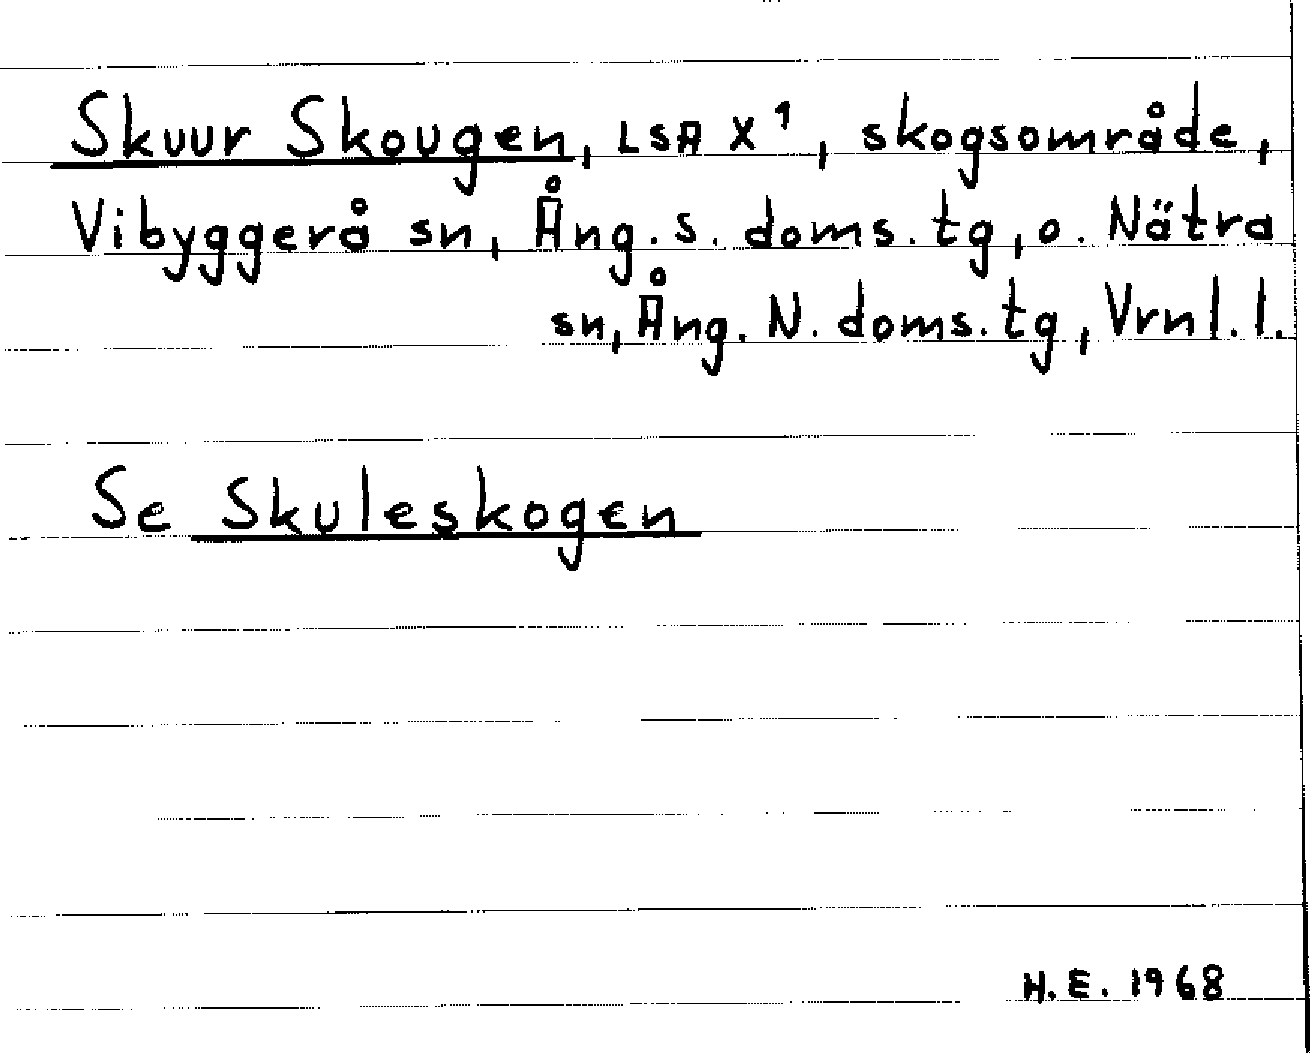 Skuur Skougen, LSA X¹, skogsområde,
Vibyggerå sn, Ång. s. doms. tg, o. Nätra
sn, Ång. N. doms. tg, Vrnl. l.
Se Skuleskogen
H. E. 1968